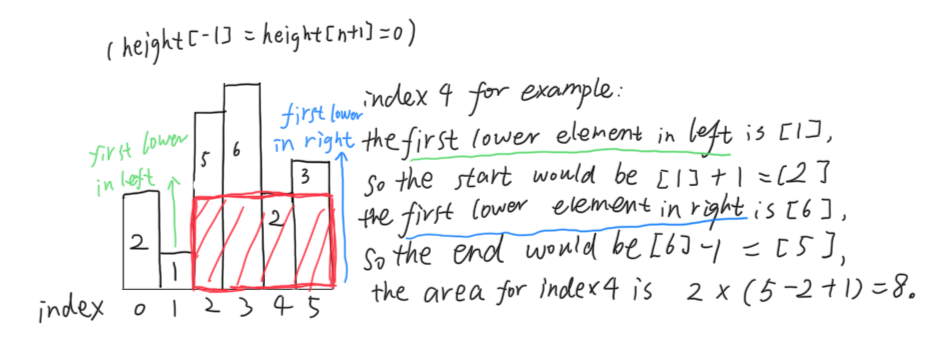 ( height[-1] = height[n+1]=0)
index 4 for example:
the first lower element in left is [1],
so the start would be [1]+1=[2]
the first lower element in right is [6],
So the end would be [6]-1 = [5],
the area for index4 is 2×(5-2+1)=8.
first lower
in left
first lower
in right
2
1
5
6
2
3
index 0 1 2 3 4 5